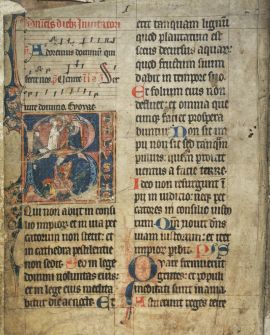 Adoremus dominum qui
Qui non abijt in consi
lio impiorum et in via pec
catorum non stetit et
in cathedra pestilentie
non sedit Sed in lege
domini voluntas eius
et in lege eius medita
bitur die ac nocte Et
erit tanquam lignum
quod plantatum est
secus decursus aquarum
quod fructum suum
dabit in tempore suo
Et folium eius non
defluet et omnia que
cumque faciet prospera
buntur Non sic im
pii non sic sed tanquam
puluis quem proicit
uentus a facie terre
Ideo non resurgunt im
pii in iudicio neque pec
catores in consilio iusto
rum Quoniam nouit dominus
uiam iustorum et iter
impiorum peribit
Quare fremuerunt
gentes et populi
meditati sunt inania
Astiterunt reges terre